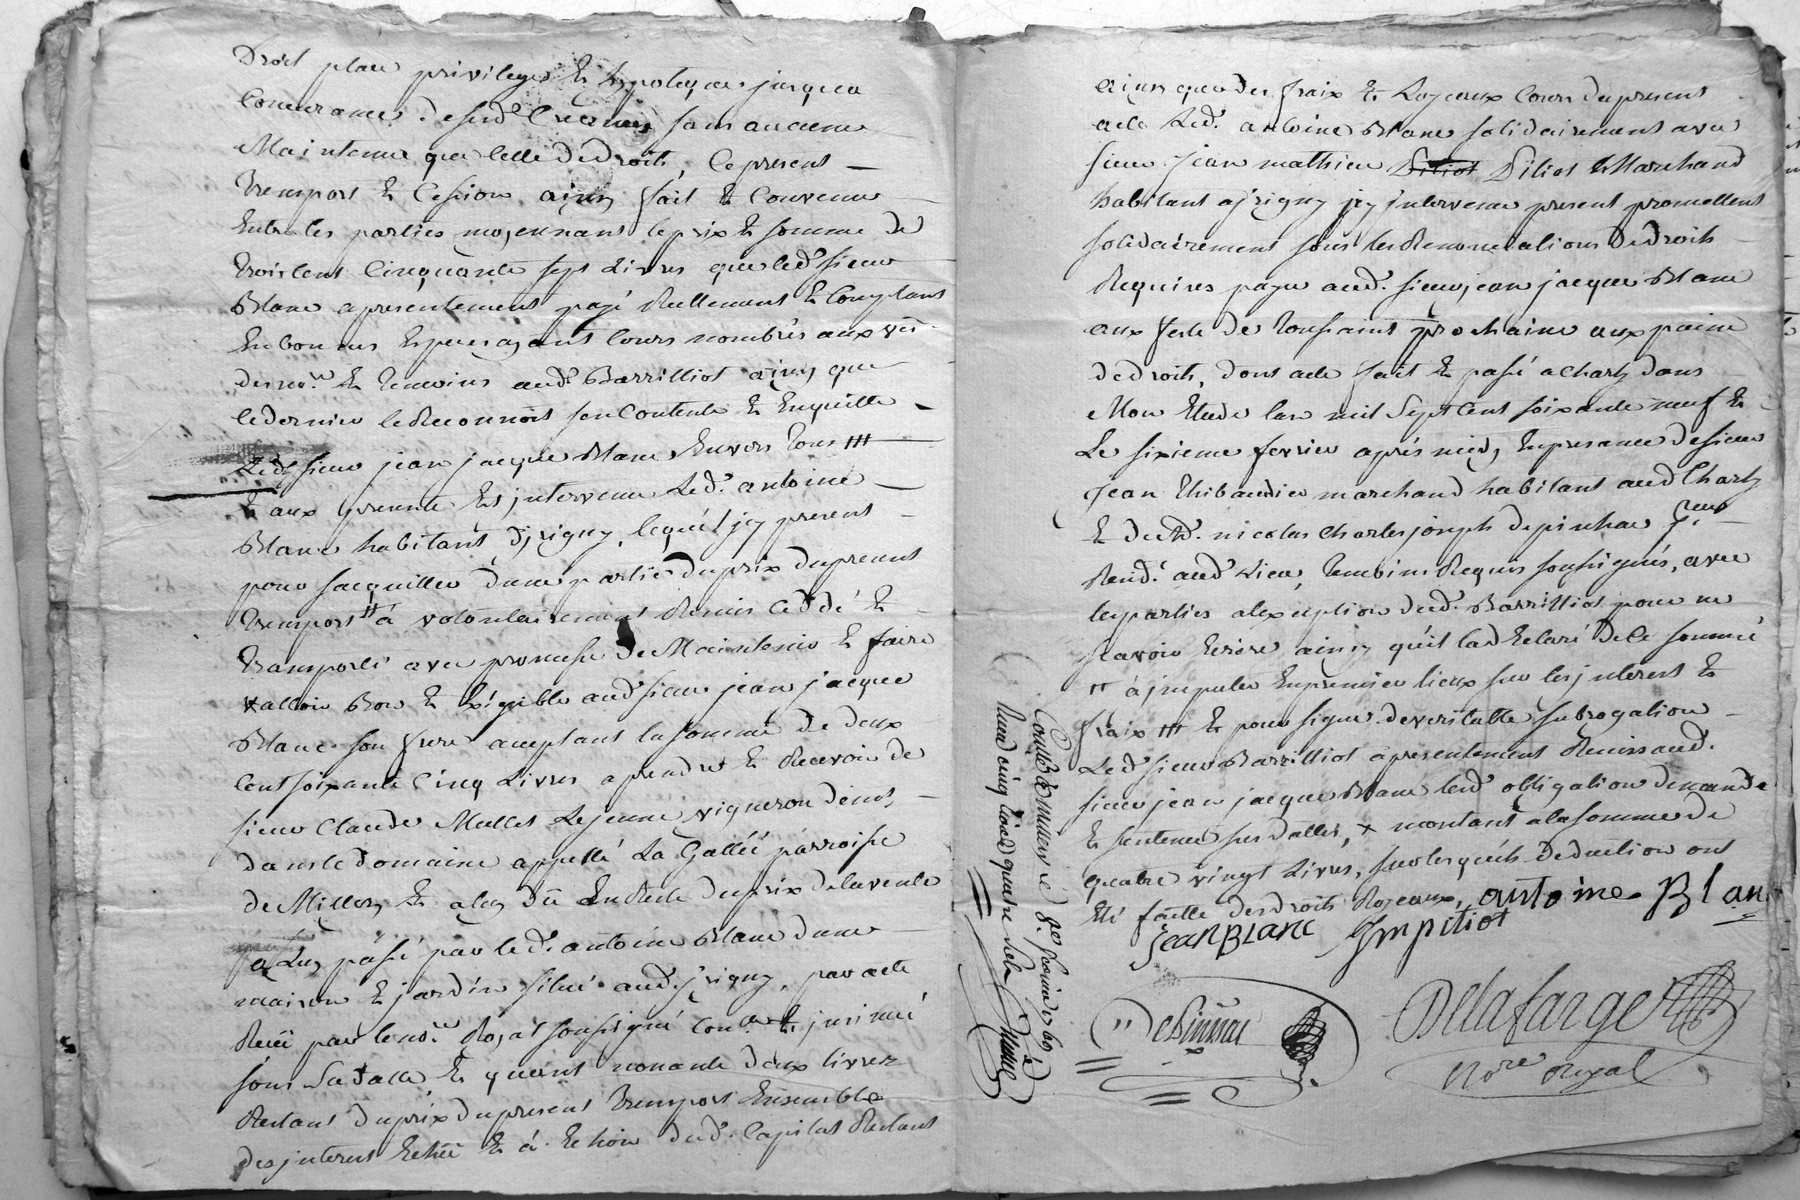 Droit place privileges Et hypoteques jusqua
Concurance desd. Creances sans aucune
Maintenue que Celle de droits, Ce present
Transport Et Cession ainsy fait Et Convenu
Entre les parties moyennant le prix Et somme de
trois Cent Cinquante sept Livres que led. sieur
Blanc a presentement payé Reellement Et Comptant
En bonnes Especes ayant Cours nombrés aux
des no.re Et temoins aud. Barrilliot ainsy que
le dernier le Reconnoit sen Contente Et En quitte
Led. sieur jean jacque Blanc Envers tous ///
Et aux presente Est jntervenu Led. antoine
Blanc habitant Djrigny, lequel jcy present
pour sacquitter dune partie du prix du present
transport # a volontairement Remis Ceddé Et
transporté avec promesse de Maintenir Et faire
valloir Bon Et Exigible aud. sieur jean jacque
Blanc son frere acceptant la somme de deux
Cent soixante Cinq Livres a prendre Et Recevoir de
sieur Claude Mullet Lejeune vigneron demt.
dans le domaine appellé La Gallée parroisse
de Millery Et a luy dü En Reste du prix de la vente
a Luy passé par led. antoine Blanc dune
maison Et jardin situé aud. jrigny, par acte
Recü par le no.re Royal soussigné Con.lé Et jnsinué
sous Sa datte Et quant nonante deux livres
Restant du prix du present transport Ensemble
des jnterest Echü Et á Echoir dud. Capital Restant
ainsy que des fraix Et Loyeaux Cours du present
acte Led. antoine Blanc solidairement avec
sieur jean mathieu Pitiot Pitiot Marchand
habitant a jrigny jcy jntervenu present promettent
solidairement sous les Renonciations de droits
Requises payer aud. sieur jean jacque Blanc
aux feste de toussaint prochaine aux peine
de droits, dont acte fait Et passé a Charly dans
Mon Etude lan mil Sept Cent soixante neuf Et
Le sixieme fevrier aprés midy En presance de sieur
Jean Thibaudier marchand habitant aud Charly
Et de Sr. nicolas Charles joseph depinhac
Resid.t aud. Lieu, temoins Requis soussignés, avec
les parties a lexception dud. Barrilliot pour ne
scavoir Ecrire ainsy quil la declaré de Ce sommé
# à jmputer En premier lieux sur les jnterest Et
fraix /// Et pour signe de veritable subrogation
Led. sieur Barrilliot a presentement Remis aud.
sieur jean jacque Blanc lesd. obligation demande
Et sentence susdattés, x montant a la somme de
quatre vingt Livres, sur lesquels deduction ont
Eté faitte des droits Royeaux, antoine Blanc
Jean Blanc Jmpitiot
Depinhac Delafarge
No.re Royal
Controlé a Millery le 8.e fevrier 1769
Recu cinq livres quatre sols